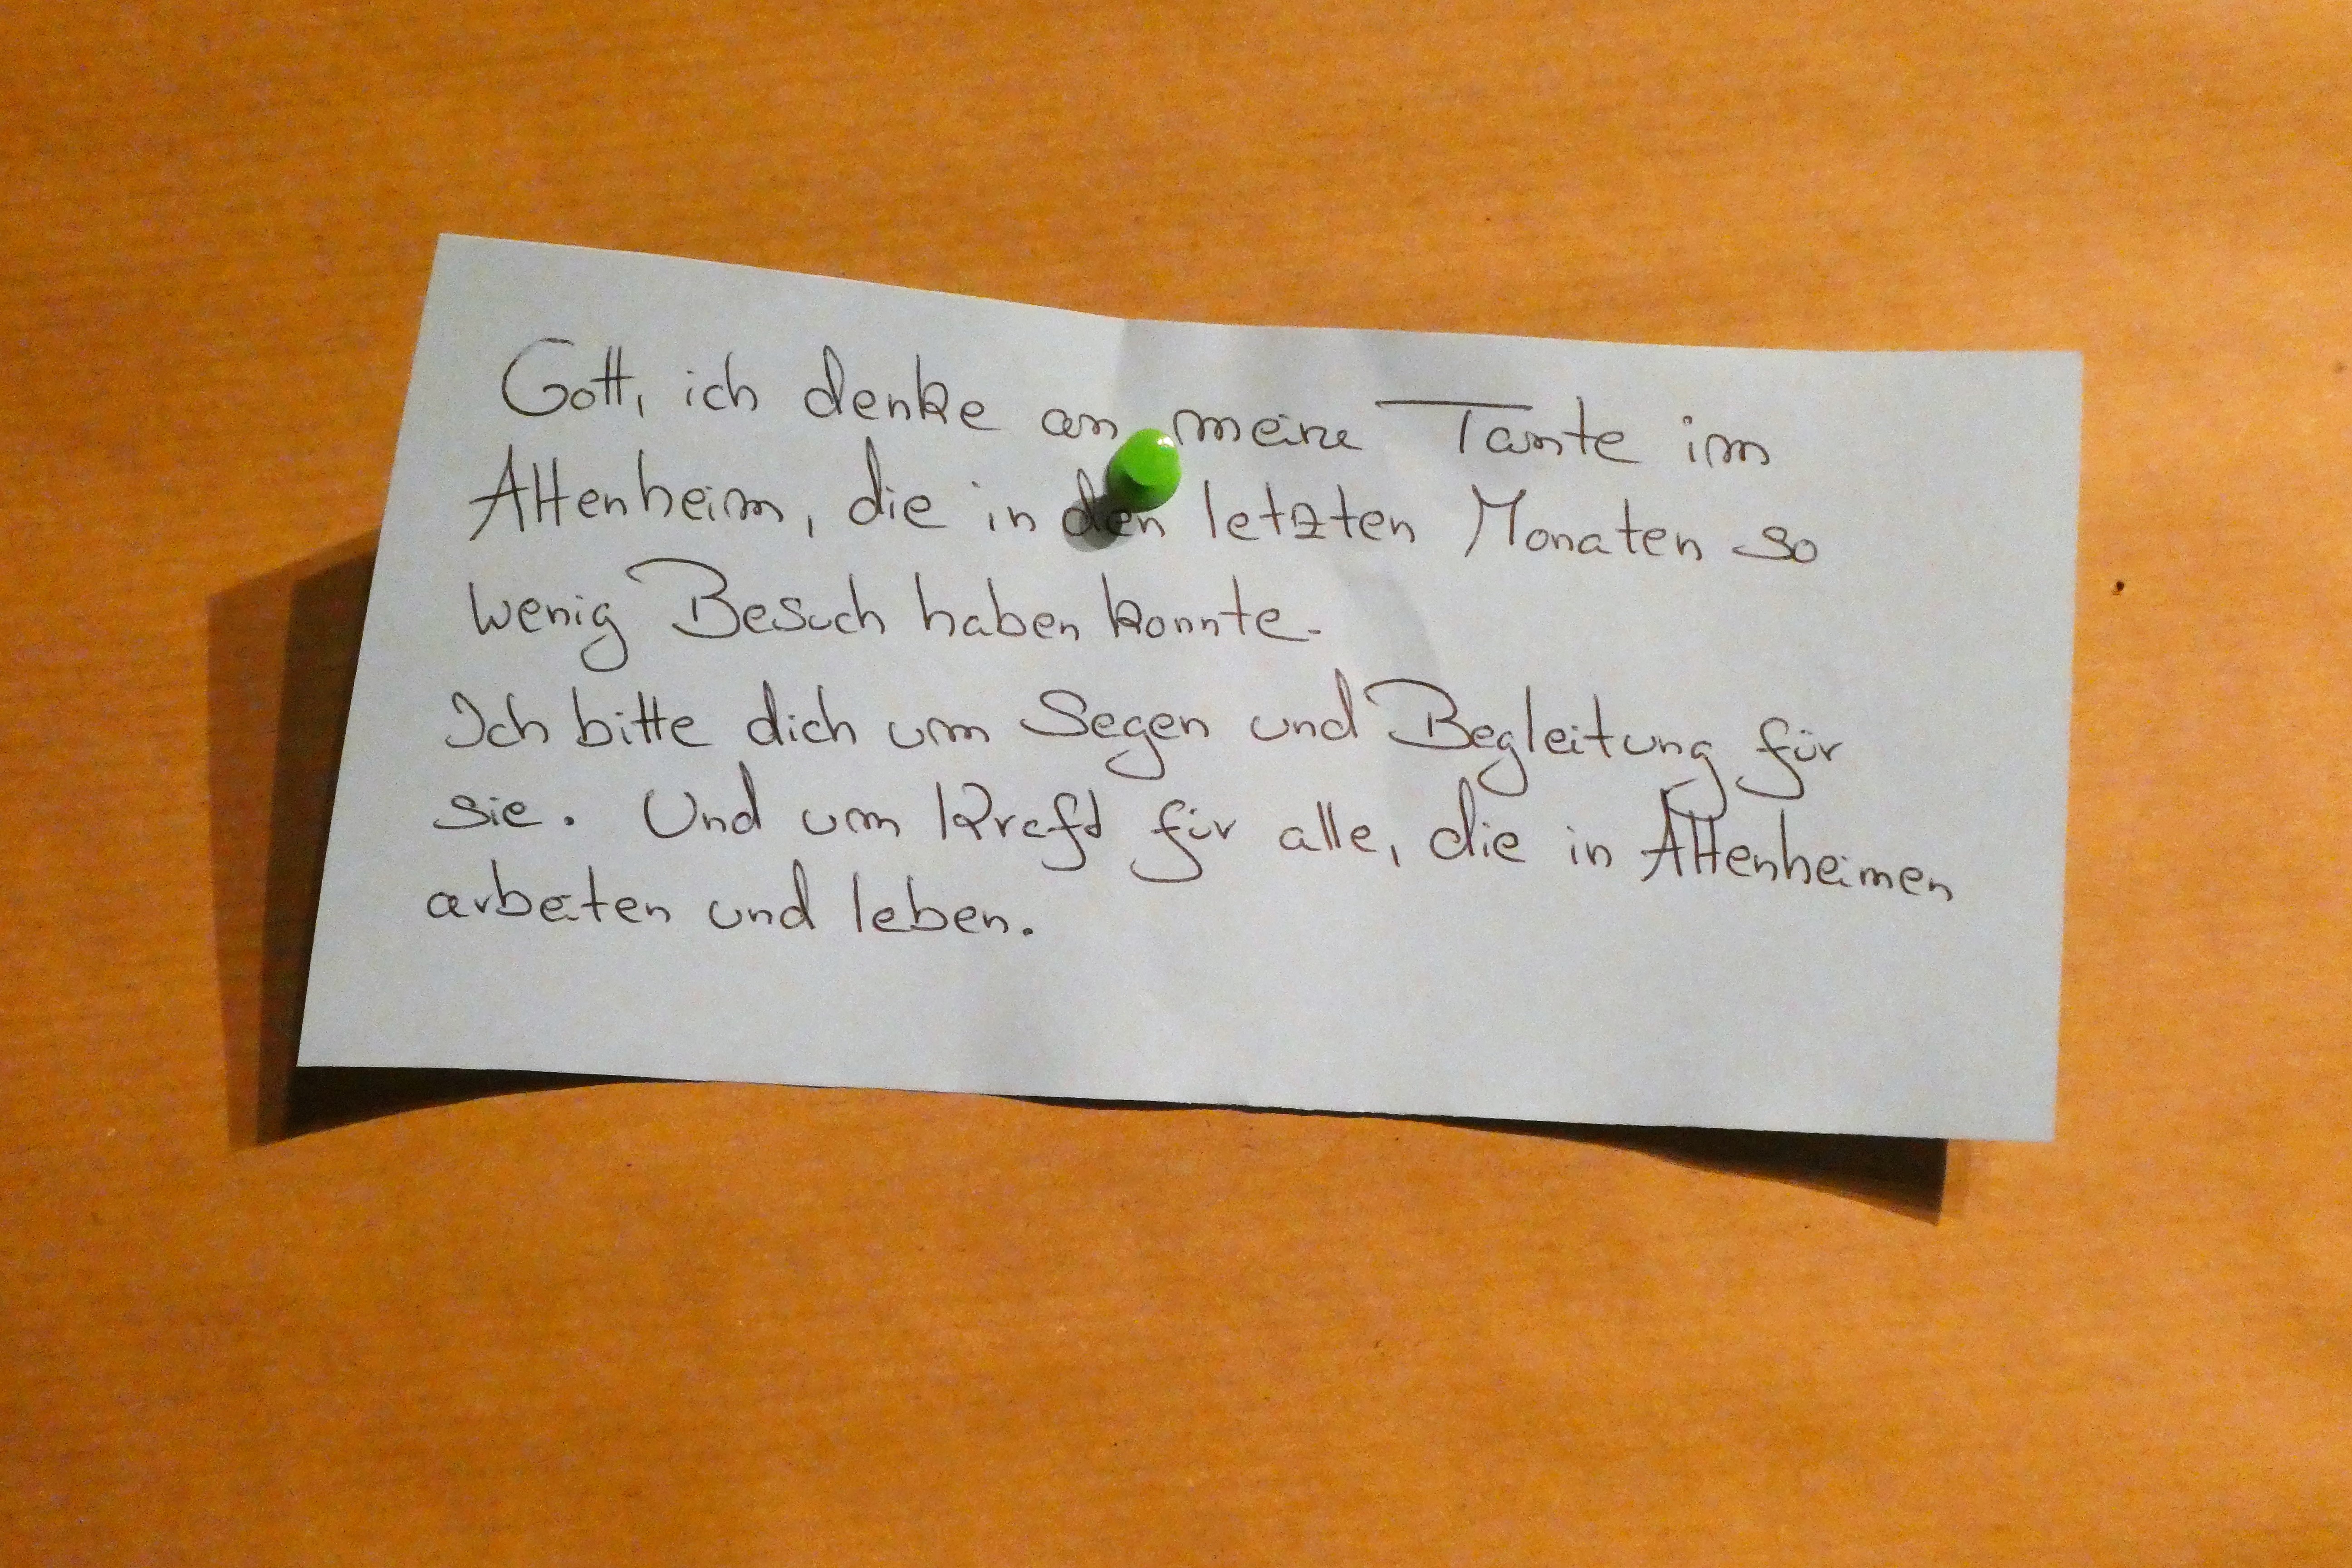 Gott, ich denke an meine Tante im
Altenheim, die in den letzten Monaten so
wenig Besuch haben konnte.
Ich bitte dich um Segen und Begleitung für
sie. Und um Kraft für alle, die in Altenheimen
arbeiten und leben.